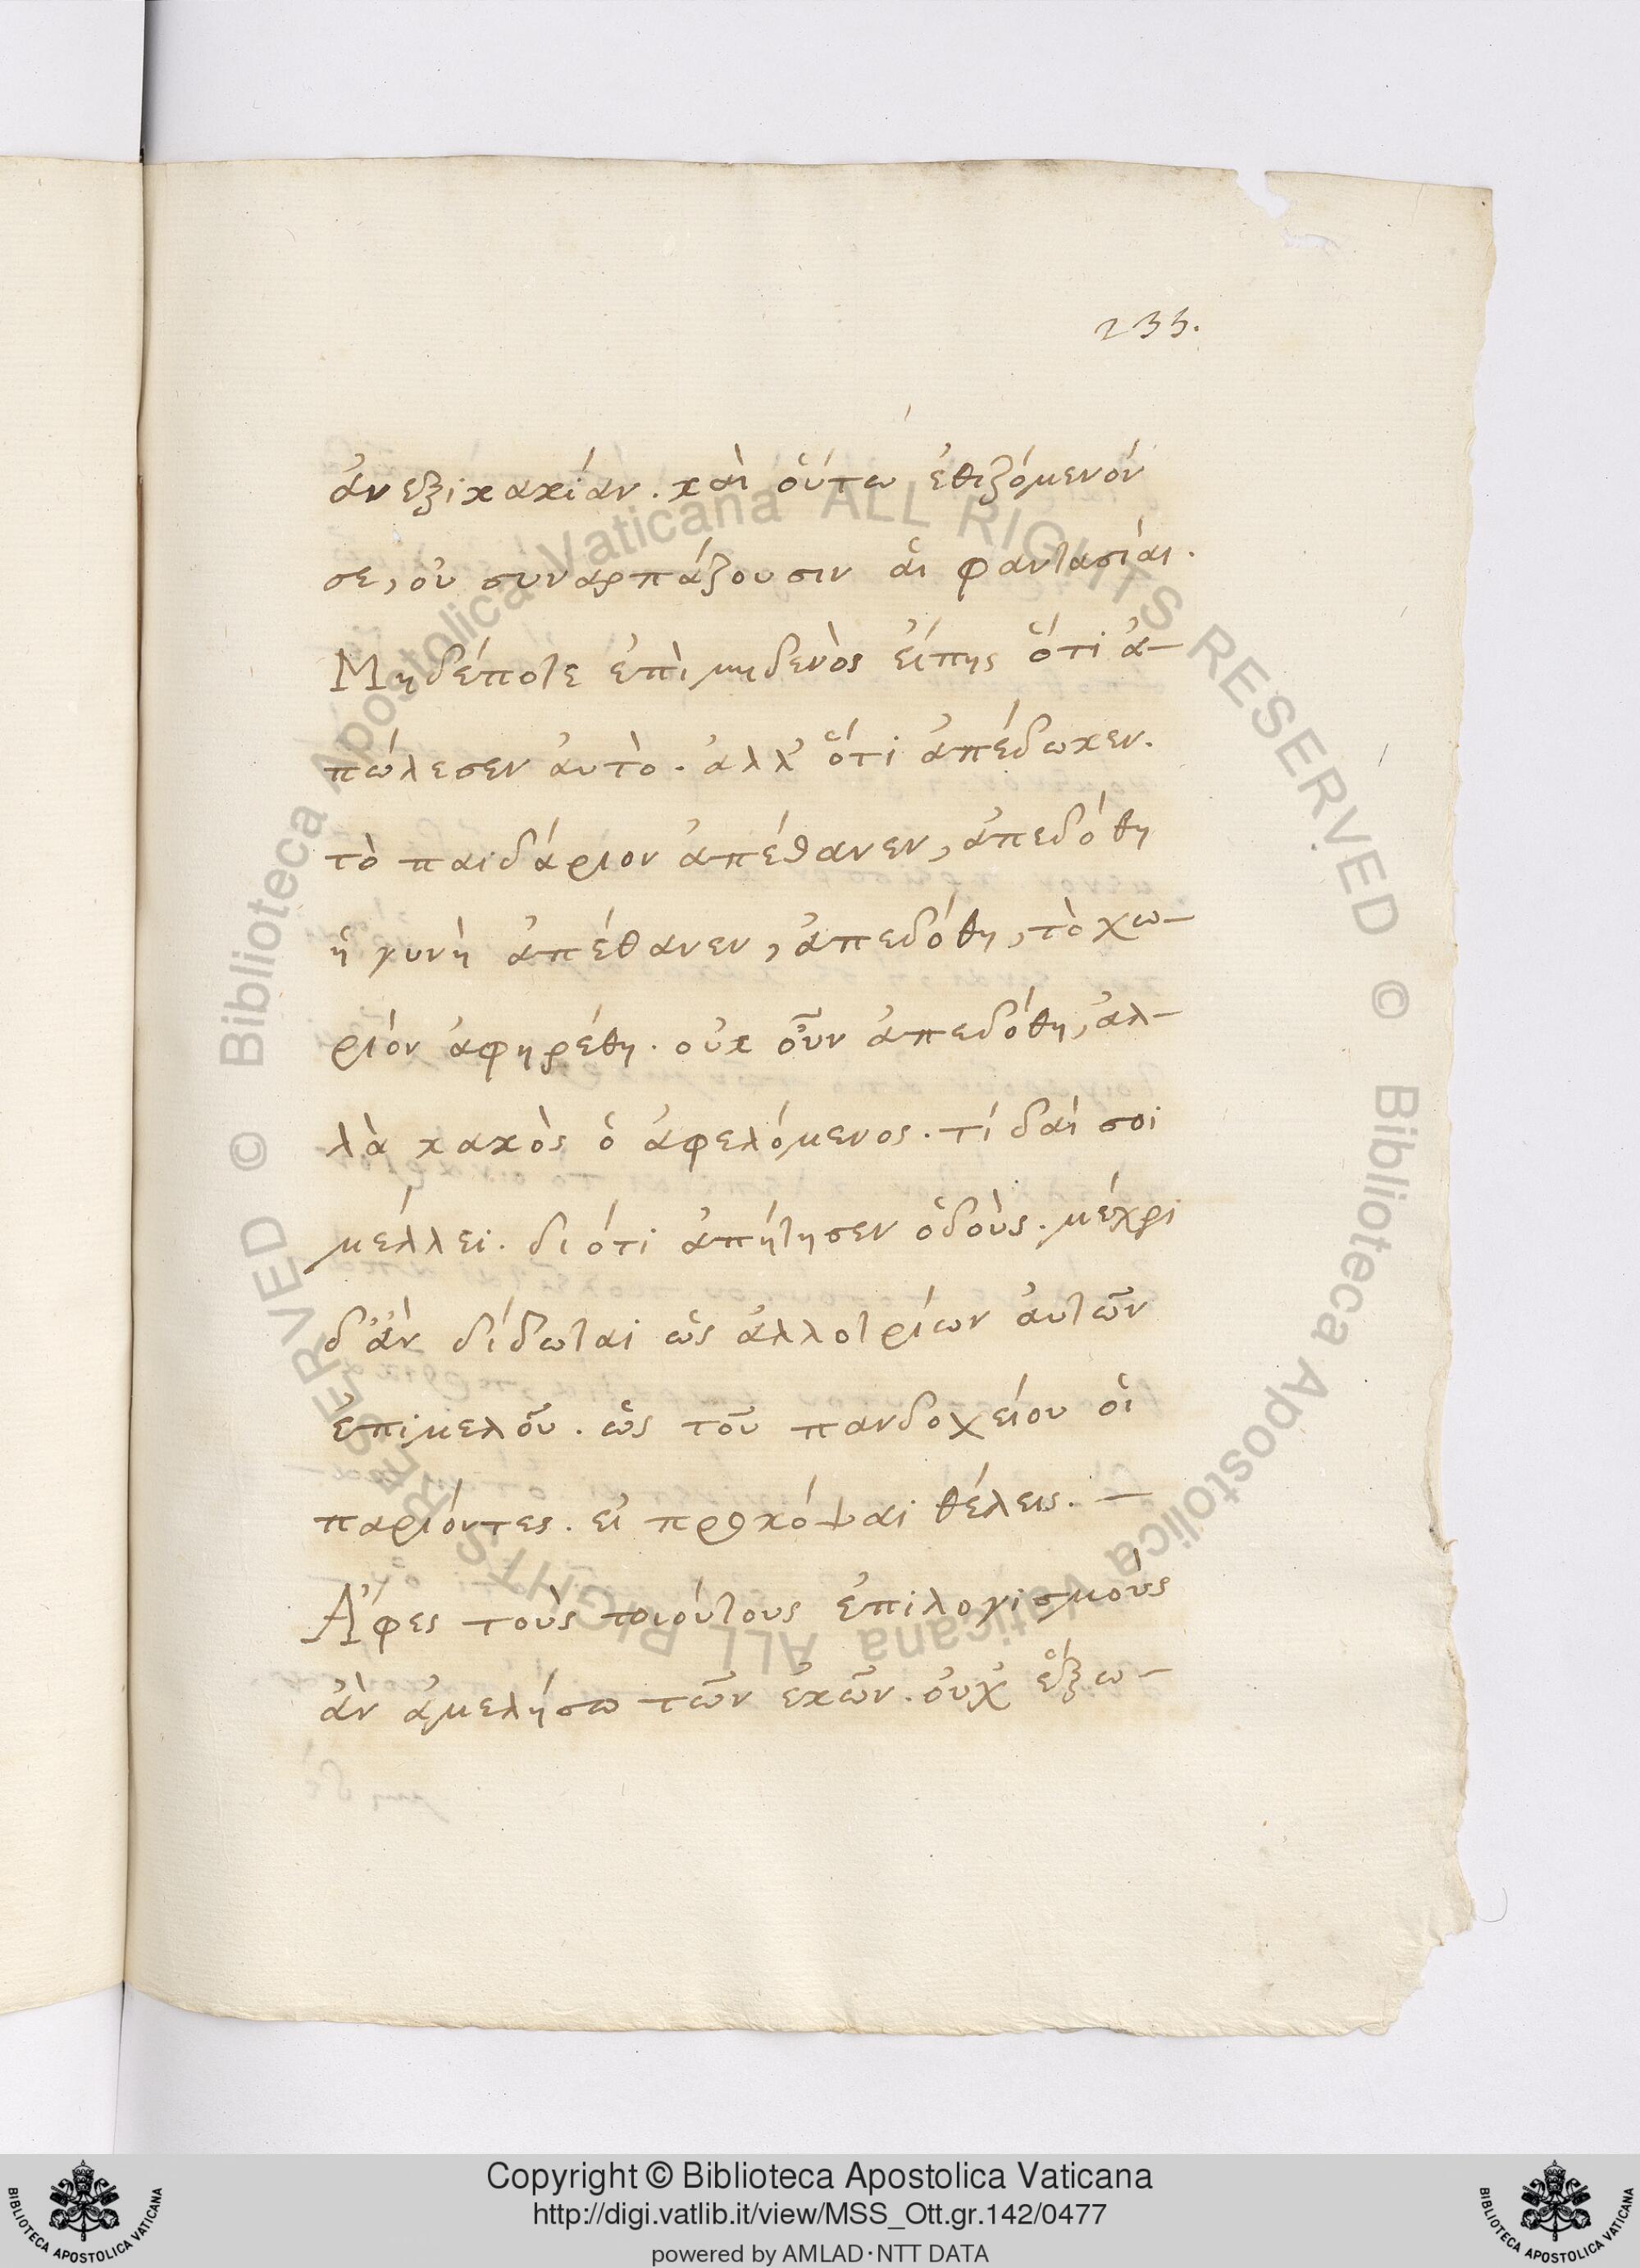 233.
ἀνεξικακίαν. καὶ οὕτω ἐθιζόμενόν
σε, οὐ συναρπάζουσιν αἱ φαντασίαι.
Μηδέποτε ἐπὶ μηδενὸς εἴπης ὅτι ἀ-
πώλεσεν ἀυτὸ. ἀλλ' ὅτι ἀπέδωκεν.
τὸ παιδάριον ἀπέθανεν, ἀπεδόθη
ἡ γυνὴ ἀπέθανεν, ἀπεδόθη, τὸ χω-
ρίον ἀφηρέθη. οὐκ οὖν ἀπεδόθη, ἀλ-
λὰ κακὸς ὁ ἀφελόμενος. τί δαί σοι
μέλλει. διότι ἀπήτησεν ὁδοὺς. μέχρι
δ' ἂν δίδωται ὡς ἀλλοτρίων ἀυτῶν
ἐπιμελοῦ. ὡς τοῦ πανδοχείου οἱ
παριόντες. εἰ προκόψαι θέλεις. —
Ἄφες τοὺς τοιούτους ἐπιλογισμούς
ἀν ἀμελήσω τῶν ἐκῶν. ὀυχ' ἕξω-
Copyright © Biblioteca Apostolica Vaticana
http://digi.vatlib.it/view/MSS_Ott.gr.142/0477
powered by AMLAD·NTT DATA
BIBLIOTECA APOSTOLICA VATICANA
BIBLIOTECA APOSTOLICA VATICANA
© Biblioteca Apostolica Vaticana ALL RIGHTS RESERVED © Biblioteca Apostolica Vaticana ALL RIGHTS RESERVED